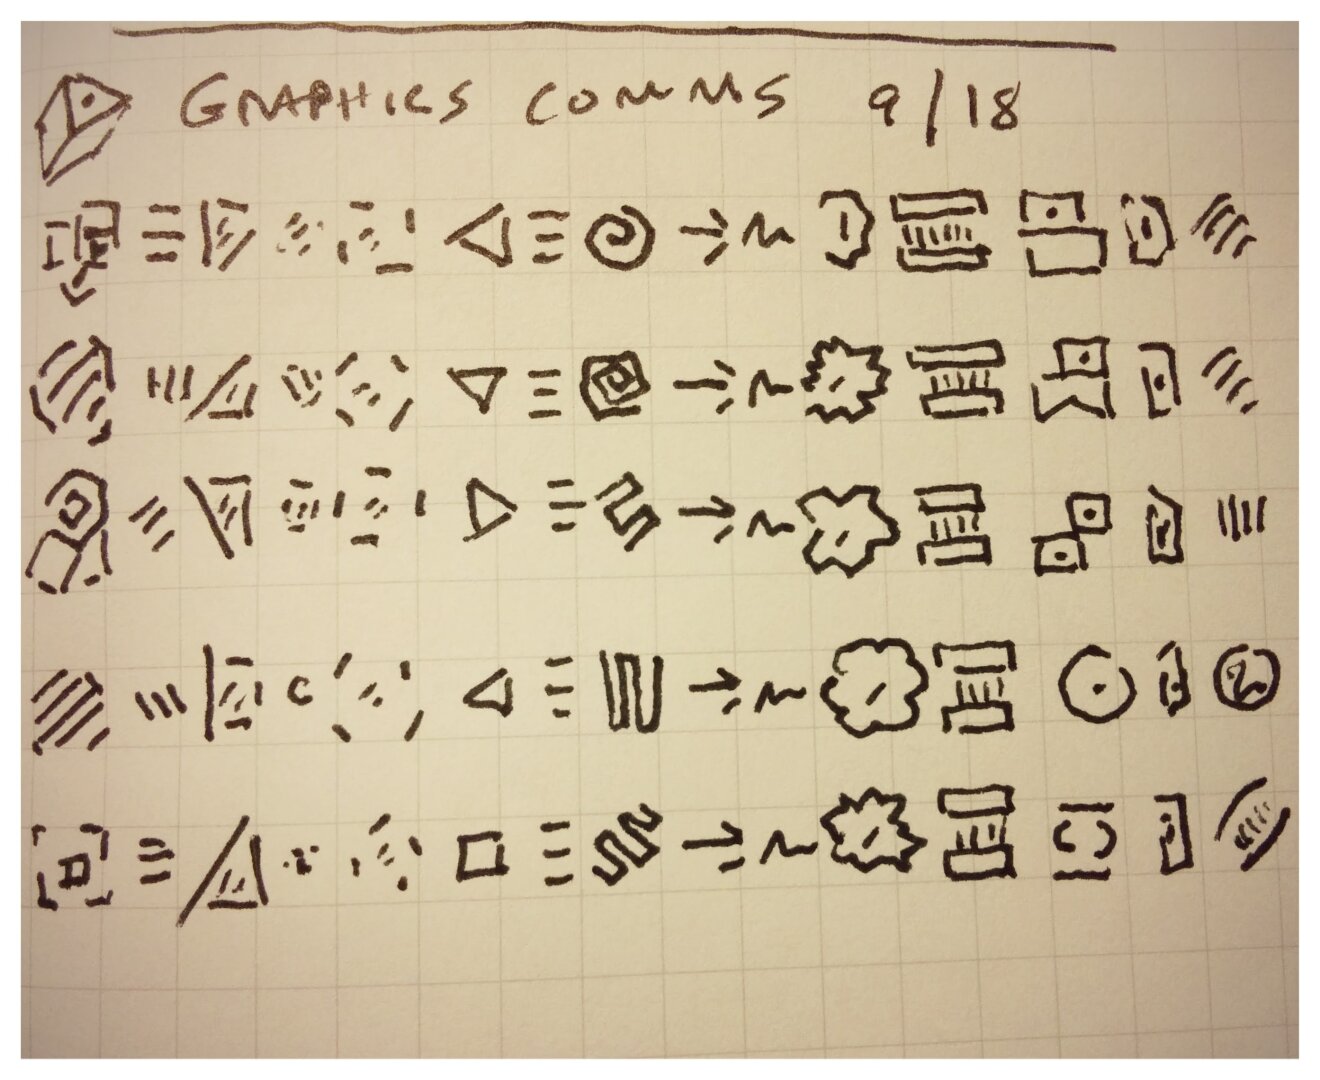 GRAPHICS COMMS 9/18